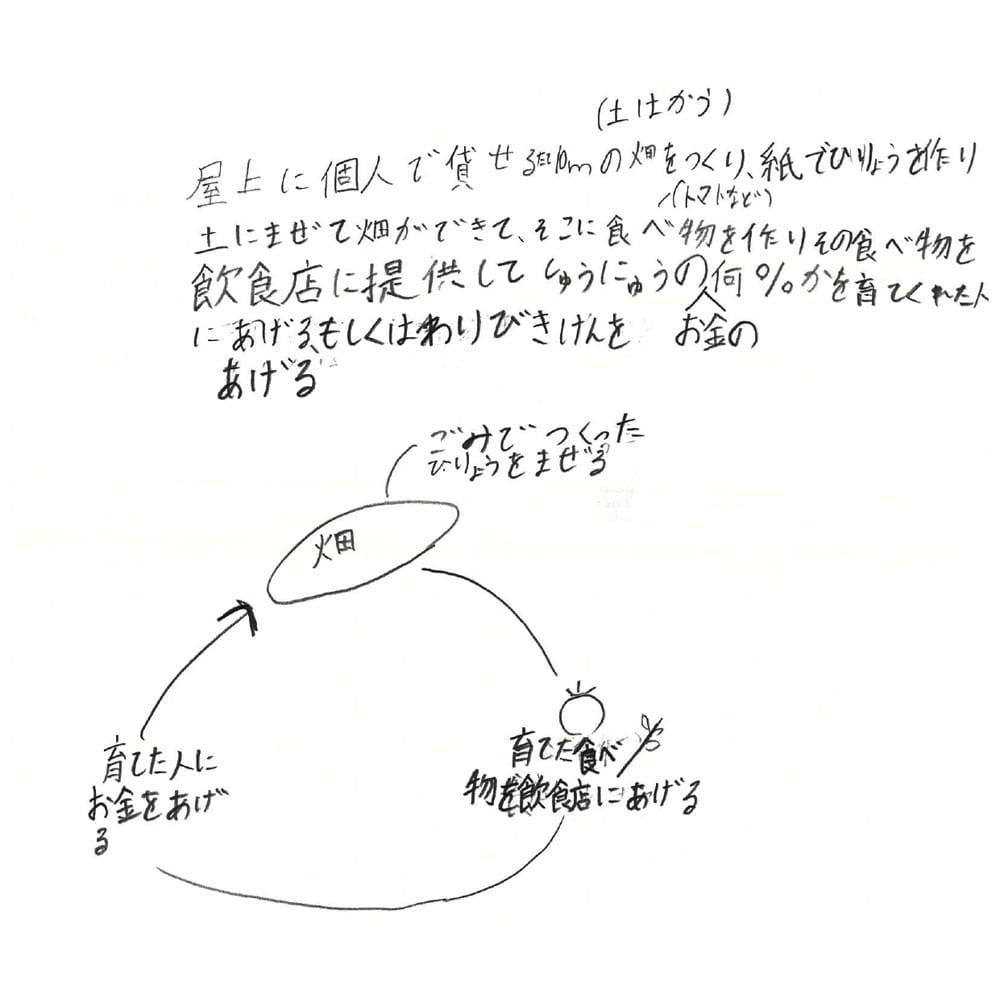 (土はかう)
屋上に個人で貸せるたて10mの畑をつくり、紙でひりょうを作り
(トマトなど)
土にまぜて畑ができて、そこに食べ物を作りその食べ物を
飲食店に提供してしゅうにゅうの何%かを育てくれた人
お金の
にあげる、もしくはわりびきけんを
あげる
ごみでつくった
ひりょうをまぜる
畑
育てた食べ
物を飲食店にあげる
育てた人に
お金をあげ
る